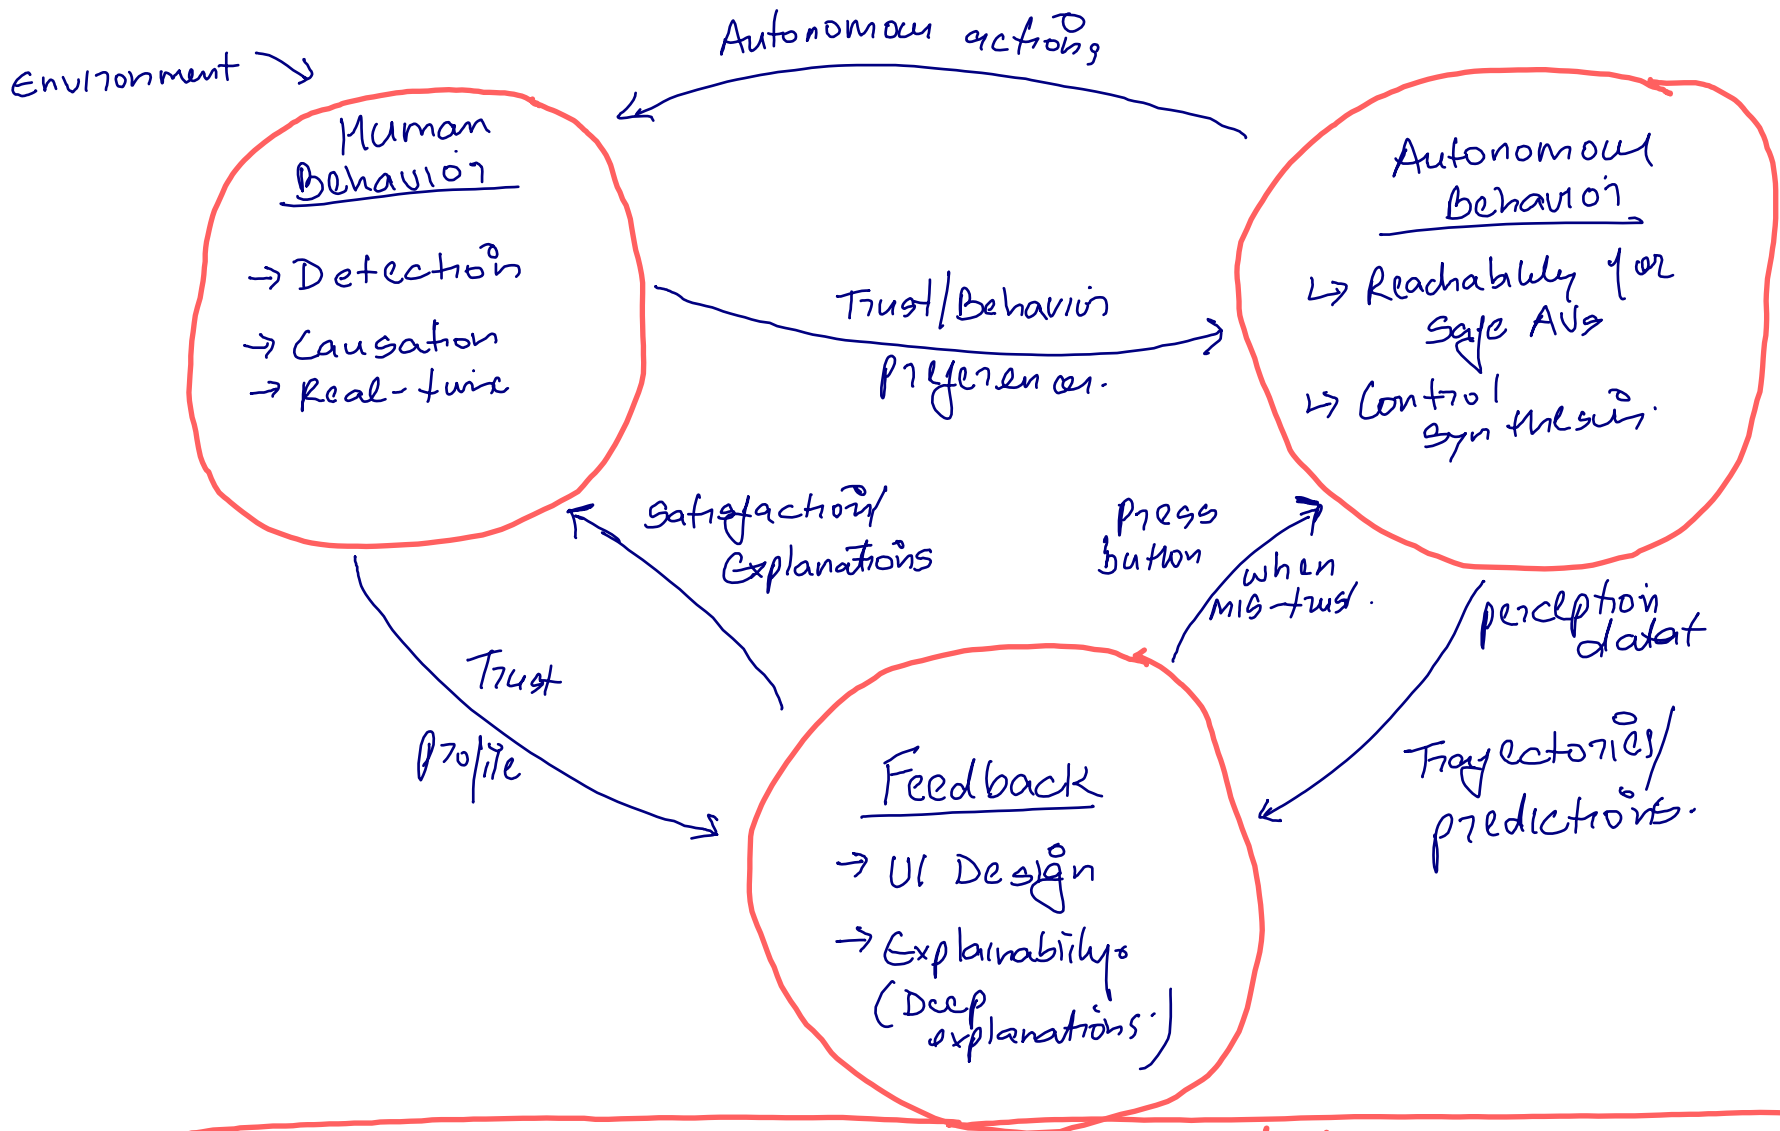 Environment
Autonomous actions
Human
Behavior
→ Detection
→ Causation
→ Real-time
Autonomous
Behavior
↳ Reachability for
safe AVs
↳ Control
synthesis.
Trust/Behavior
preferences.
Satisfaction/
Explanations
Press
button
when
mis-trust.
perception
data+
Trajectories/
predictions.
Trust
profile
Feedback
→ UI Design
→ Explainability
(Deep
explanations.)